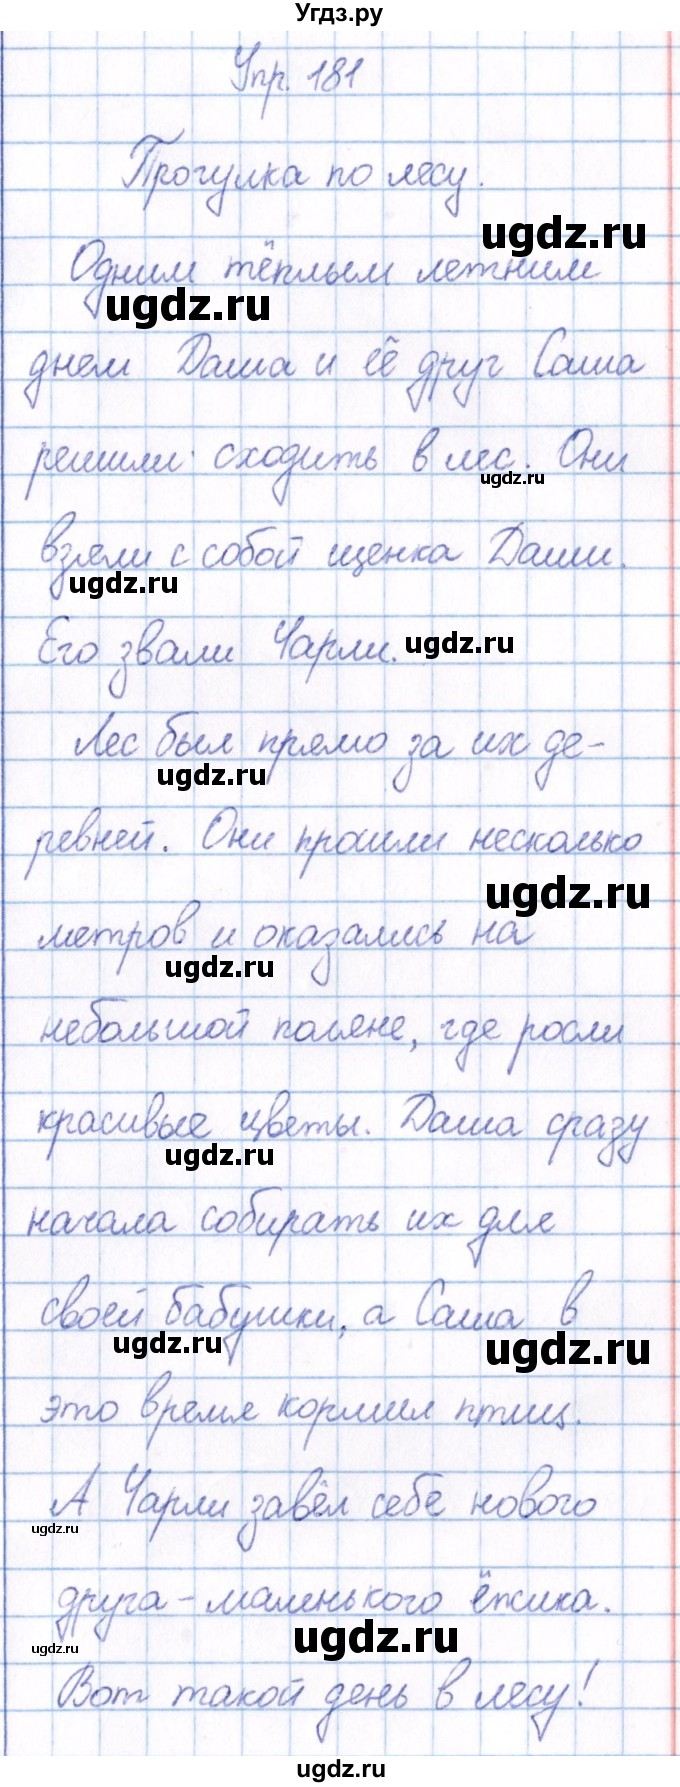 Угдз.ру
Упр. 181
Прогулка по лесу.
ugdz.ru
Одним тёплым летним
ugdz.ru
днем Даша и её друг Саша
решили сходить в лес. Они
ugdz.ru
взяли с собой щенка Даши.
ugdz.ru
Его звали Чарли.
ugdz.ru
Лес был прямо за их де-
ugdz.ru
ревней. Они прошли несколько
ugdz.ru
метров и оказались на
ugdz.ru
небольшой поляне, где росли
красивые цветы. Даша сразу
ugdz.ru
начала собирать их для
своей бабушки, а Саша в
ugdz.ru
ugdz.ru
это время кормил птиц.
А Чарли завёл себе нового
ugdz.ru
друга - маленького ёжика.
ugdz.ru
ugdz.ru
Вот такой день в лесу!
ugdz.ru